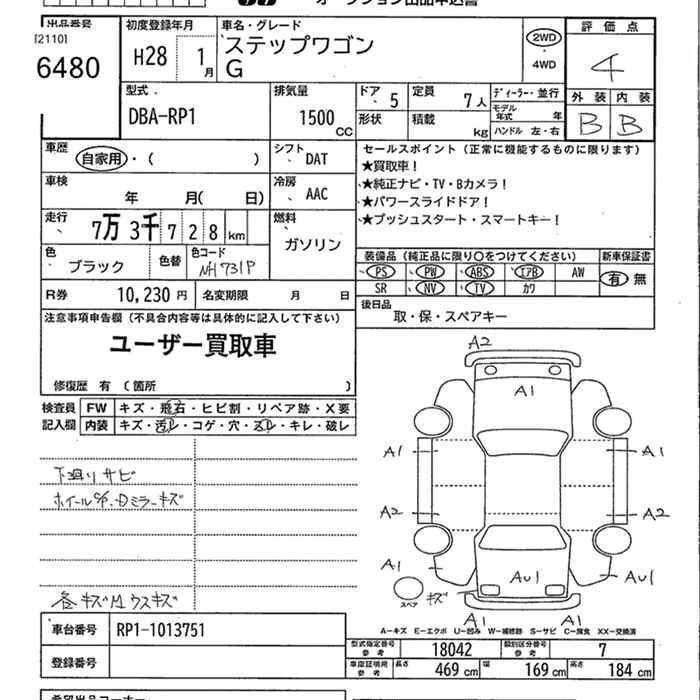 オークション出品申込書
出品番号 初度登録年月 車名・グレード 評価点
[2110] 6480 H28 1月 ステップワゴン 2WD 4
G 4WD
型式 排気量 ドア 定員 ディーラー・並行 外装 内装
DBA-RP1 1500 CC 5 7人 モデル年式 年 B B
形状 積載 kg ハンドル 左・右
車歴 自家用・( ) シフト DAT セールスポイント (正常に機能するものに限ります)
★買取車!
車検 年 月( 日) 冷房 AAC ★純正ナビ・TV・Bカメラ!
★パワースライドドア!
走行 7万3千728km 燃料 ガソリン ★プッシュスタート・スマートキー!
色 ブラック 色替 色コード NH731P 装備品 (純正品に限り○をつけてください) 新車保証書
PS PW ABS エアB AW 有・無
SR NV TV カワ
R券 10,230円 名変期限 月 日 後日品
取・保・スペアキー
注意事項申告欄(不具合内容等は具体的に記入して下さい)
ユーザー買取車
修復歴 有 (箇所 )
検査員 FW キズ・飛石・ヒビ割・リペア跡・X要
記入欄 内装 キズ・汚レ・コゲ・穴・スレ・キレ・破レ
下廻りサビ
ホイールC/P、Dミラーキズ
各キズMウスキズ
A2
A1
A1 A1
A2 A2
A1 AU1 AU1
スペア キズ
A1 A1
A-キズ E-エクボ U-凹み W-補修跡 S-サビ C-腐食 XX-交換済
車台番号 RP1-1013751
型式指定番号 参考 18042 類別区分番号 参考 7
登録番号 車庫証明用 参考 長さ 469cm 幅 169cm 高さ 184cm
希望出品コーナー